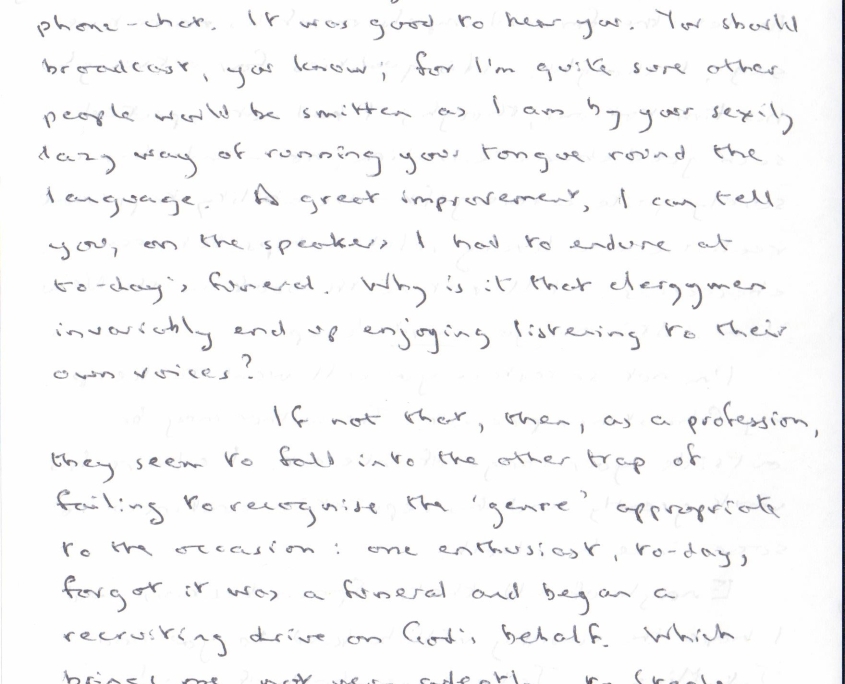 phone-chat. It was good to hear you. You should
broadcast, you know; for I'm quite sure other
people would be smitten as I am by your sexily
lazy way of running your tongue round the
language. A great improvement, I can tell
you, on the speakers I had to endure at
to-day's funeral. Why is it that clergymen
invariably end up enjoying listening to their
own voices?
If not that, then, as a profession,
they seem to fall into the other trap of
failing to recognise the 'genre' appropriate
to the occasion: one enthusiast, to-day,
forgot it was a funeral and began a
recruiting drive on God's behalf. Which
brings me, not very